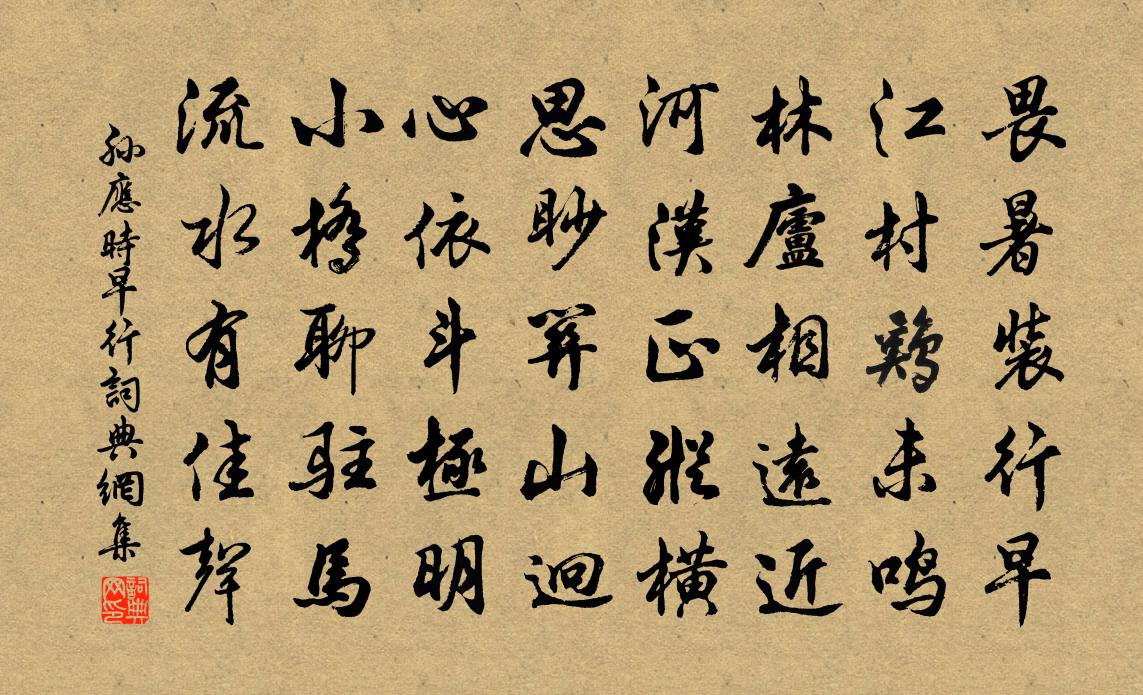 畏暑裝行早
江村鷄未鳴
林廬相遠近
河漢正縱橫
思眇關山迥
心依斗極明
小橋聊駐馬
流水有佳聲
孫應時早行詞典網集
詞典网印